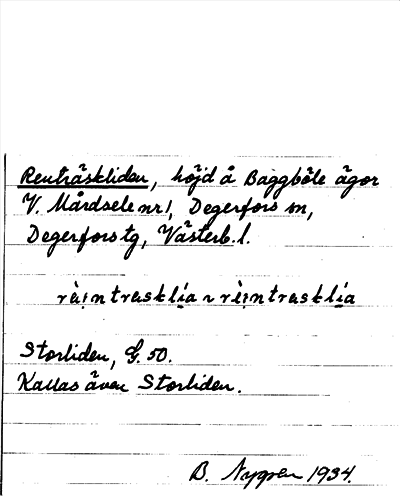 Renträskliden, höjd å Baggböle ägor
V. Mårdsele nr 1, Degerfors sn,
Degerfors tg, Västerb. l.
rèi̩ntrasklía ~ rèi̩ntrasklía
Storliden, G. 50.
Kallas även Storliden.
B. Nygren 1934.